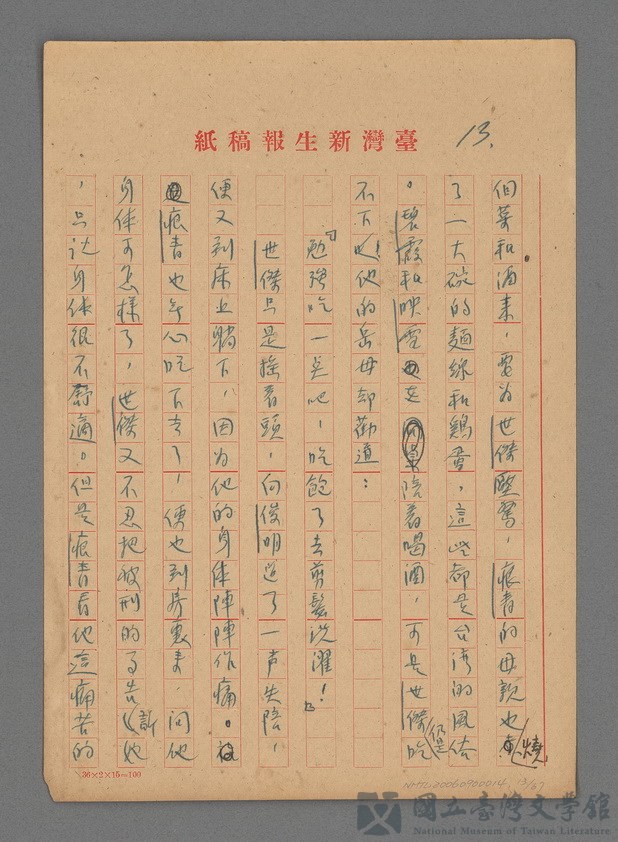 紙稿報生新灣臺
13.
個菜和酒来，要為世傑壓驚，痕青的母親也燒
了一大碗的麵線和鷄蛋，這些都是台湾的風俗
。碧霞和映雪在陪着喝酒，可是世傑仍是吃
不下，他的岳母却勸道：
「勉强吃一点吧！吃飽了去剪髮洗濯！」
世傑只是搖着頭，向俊明道了一声失陪，
便又到床上躺下，因为他的身体陣陣作痛。
痕青也無心吃下去了，便也到房裏来，问他
身体可怎樣了，世傑又不忍把被刑的事告訴她
，只说身体很不舒適。但是痕青看他這痛苦的
36×2×15=100
NMTL20060900014, 13/67
國立臺灣文學館
National Museum of Taiwan Literature